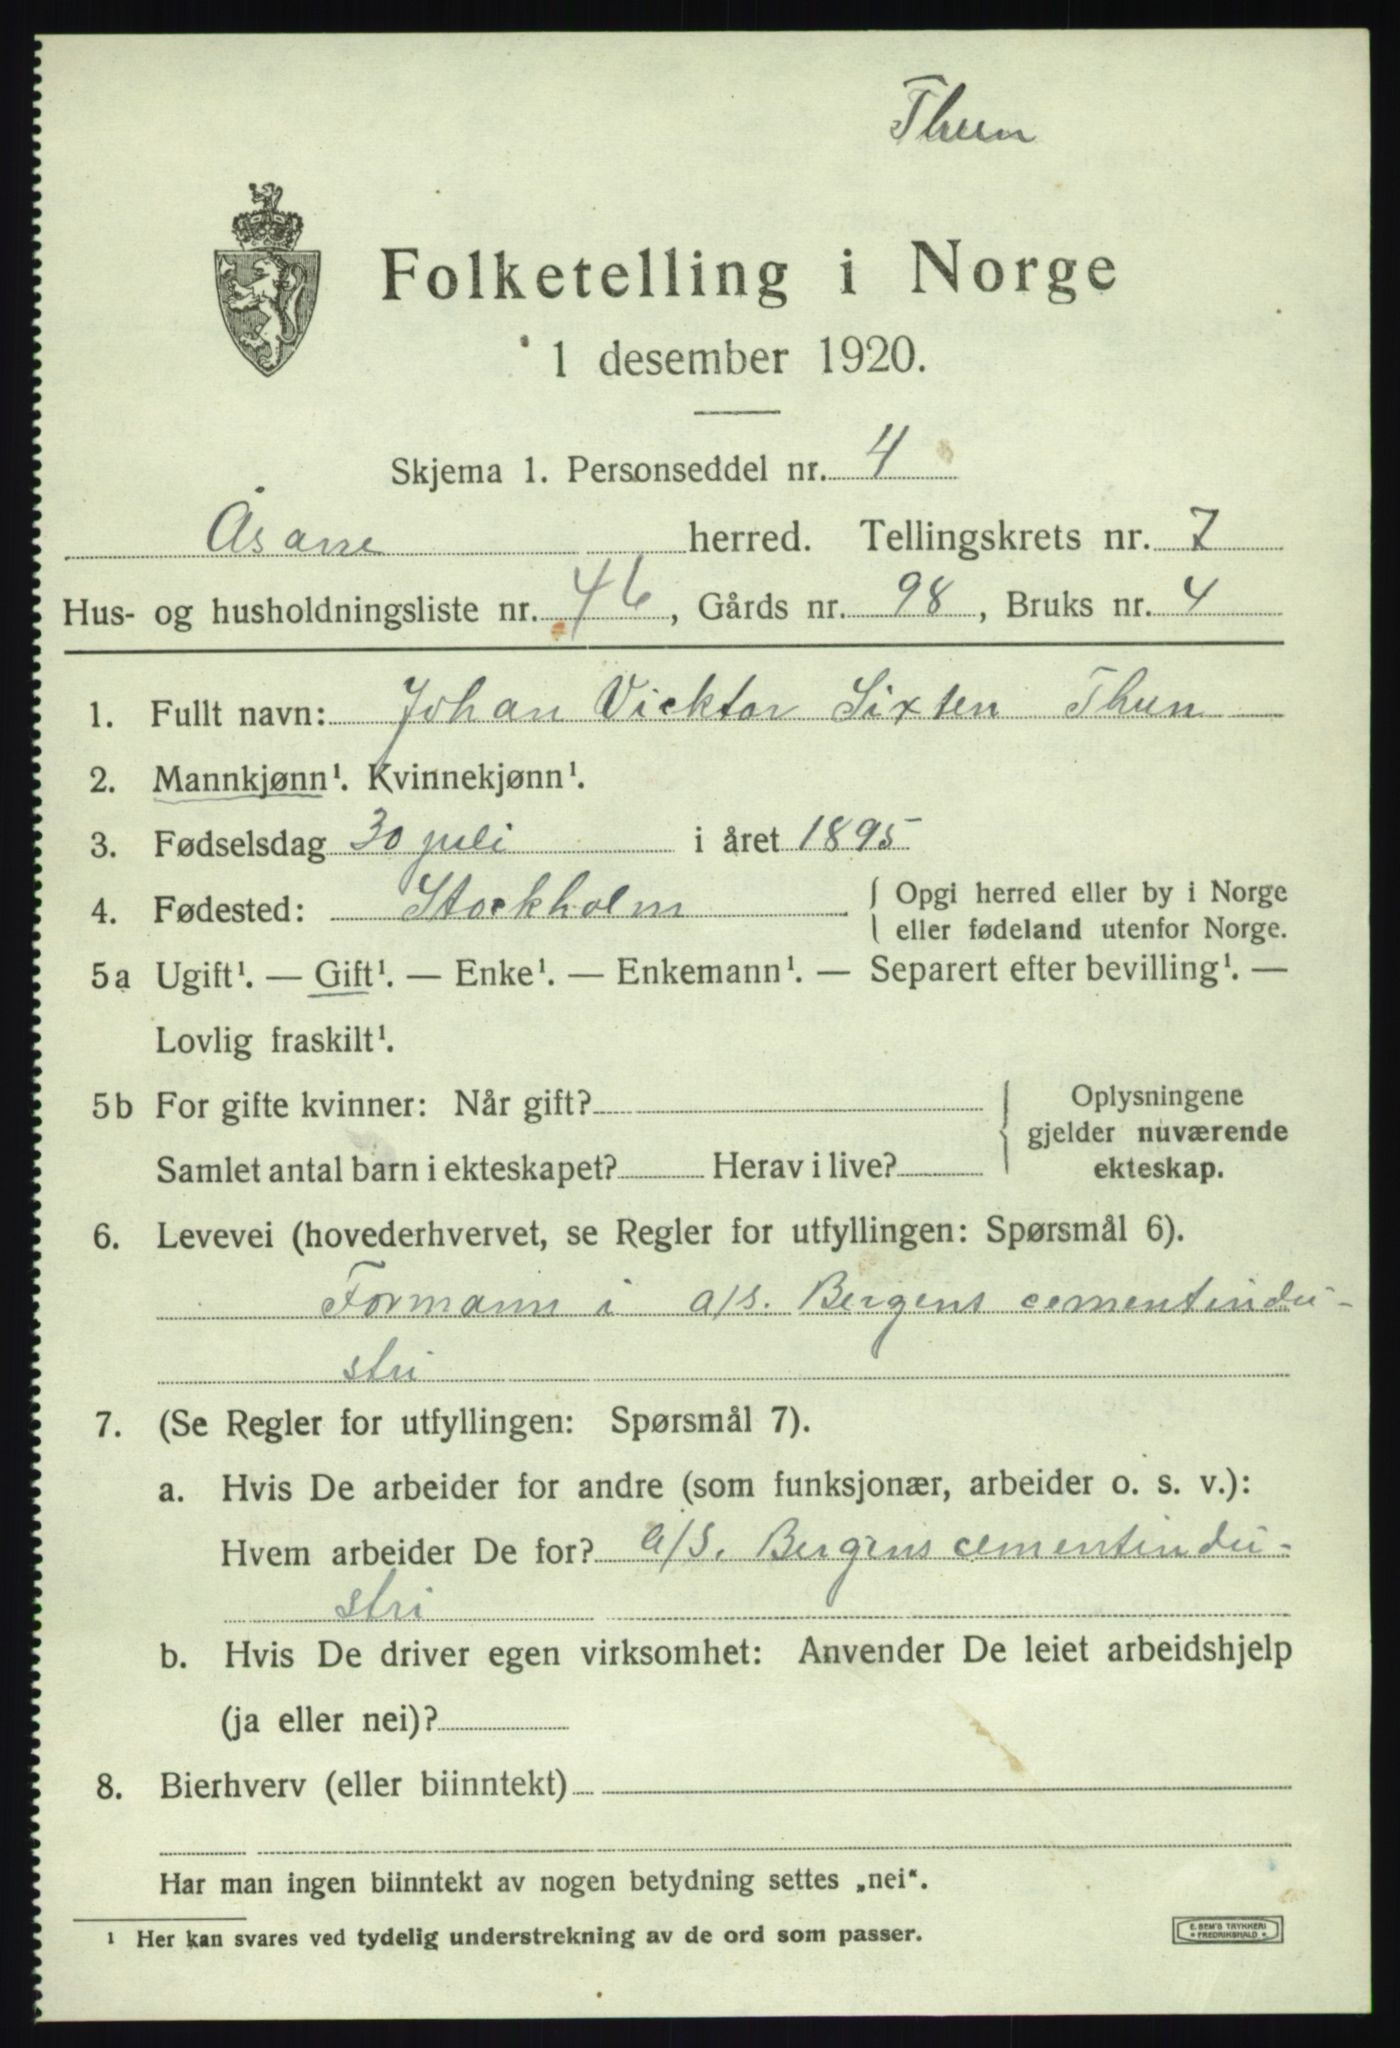 Thun
Folketelling i Norge
1 desember 1920.
Skjema 1. Personseddel nr. 4
Åsane herred. Tellingskrets nr. 7
Hus- og husholdningsliste nr. 46, Gårds nr. 98, Bruks nr. 4
1. Fullt navn: Johan Vicktor Sixten Thun
2. Mannkjønn¹. Kvinnekjønn¹.
3. Fødselsdag 30 juli i året 1895
4. Fødested: Stockholm { Opgi herred eller by i Norge
eller fødeland utenfor Norge.
5a Ugift¹. — Gift¹. — Enke¹. — Enkemann¹. — Separert efter bevilling¹. —
Lovlig fraskilt¹.
5b For gifte kvinner: Når gift? { Oplysningene
gjelder nuværende
Samlet antal barn i ekteskapet? Herav i live? ekteskap.
6. Levevei (hovederhvervet, se Regler for utfyllingen: Spørsmål 6).
Formann i a/s. Bergens cementindu-
stri
7. (Se Regler for utfyllingen: Spørsmål 7).
a. Hvis De arbeider for andre (som funksjonær, arbeider o. s. v.):
Hvem arbeider De for? a/s. Bergens cementindu-
stri
b. Hvis De driver egen virksomhet: Anvender De leiet arbeidshjelp
(ja eller nei)?
8. Bierhverv (eller biinntekt)
Har man ingen biinntekt av nogen betydning settes „nei".
¹ Her kan svares ved tydelig understrekning av de ord som passer.
E. SEM'S TRYKKERI
* FREDRIKSHALD *